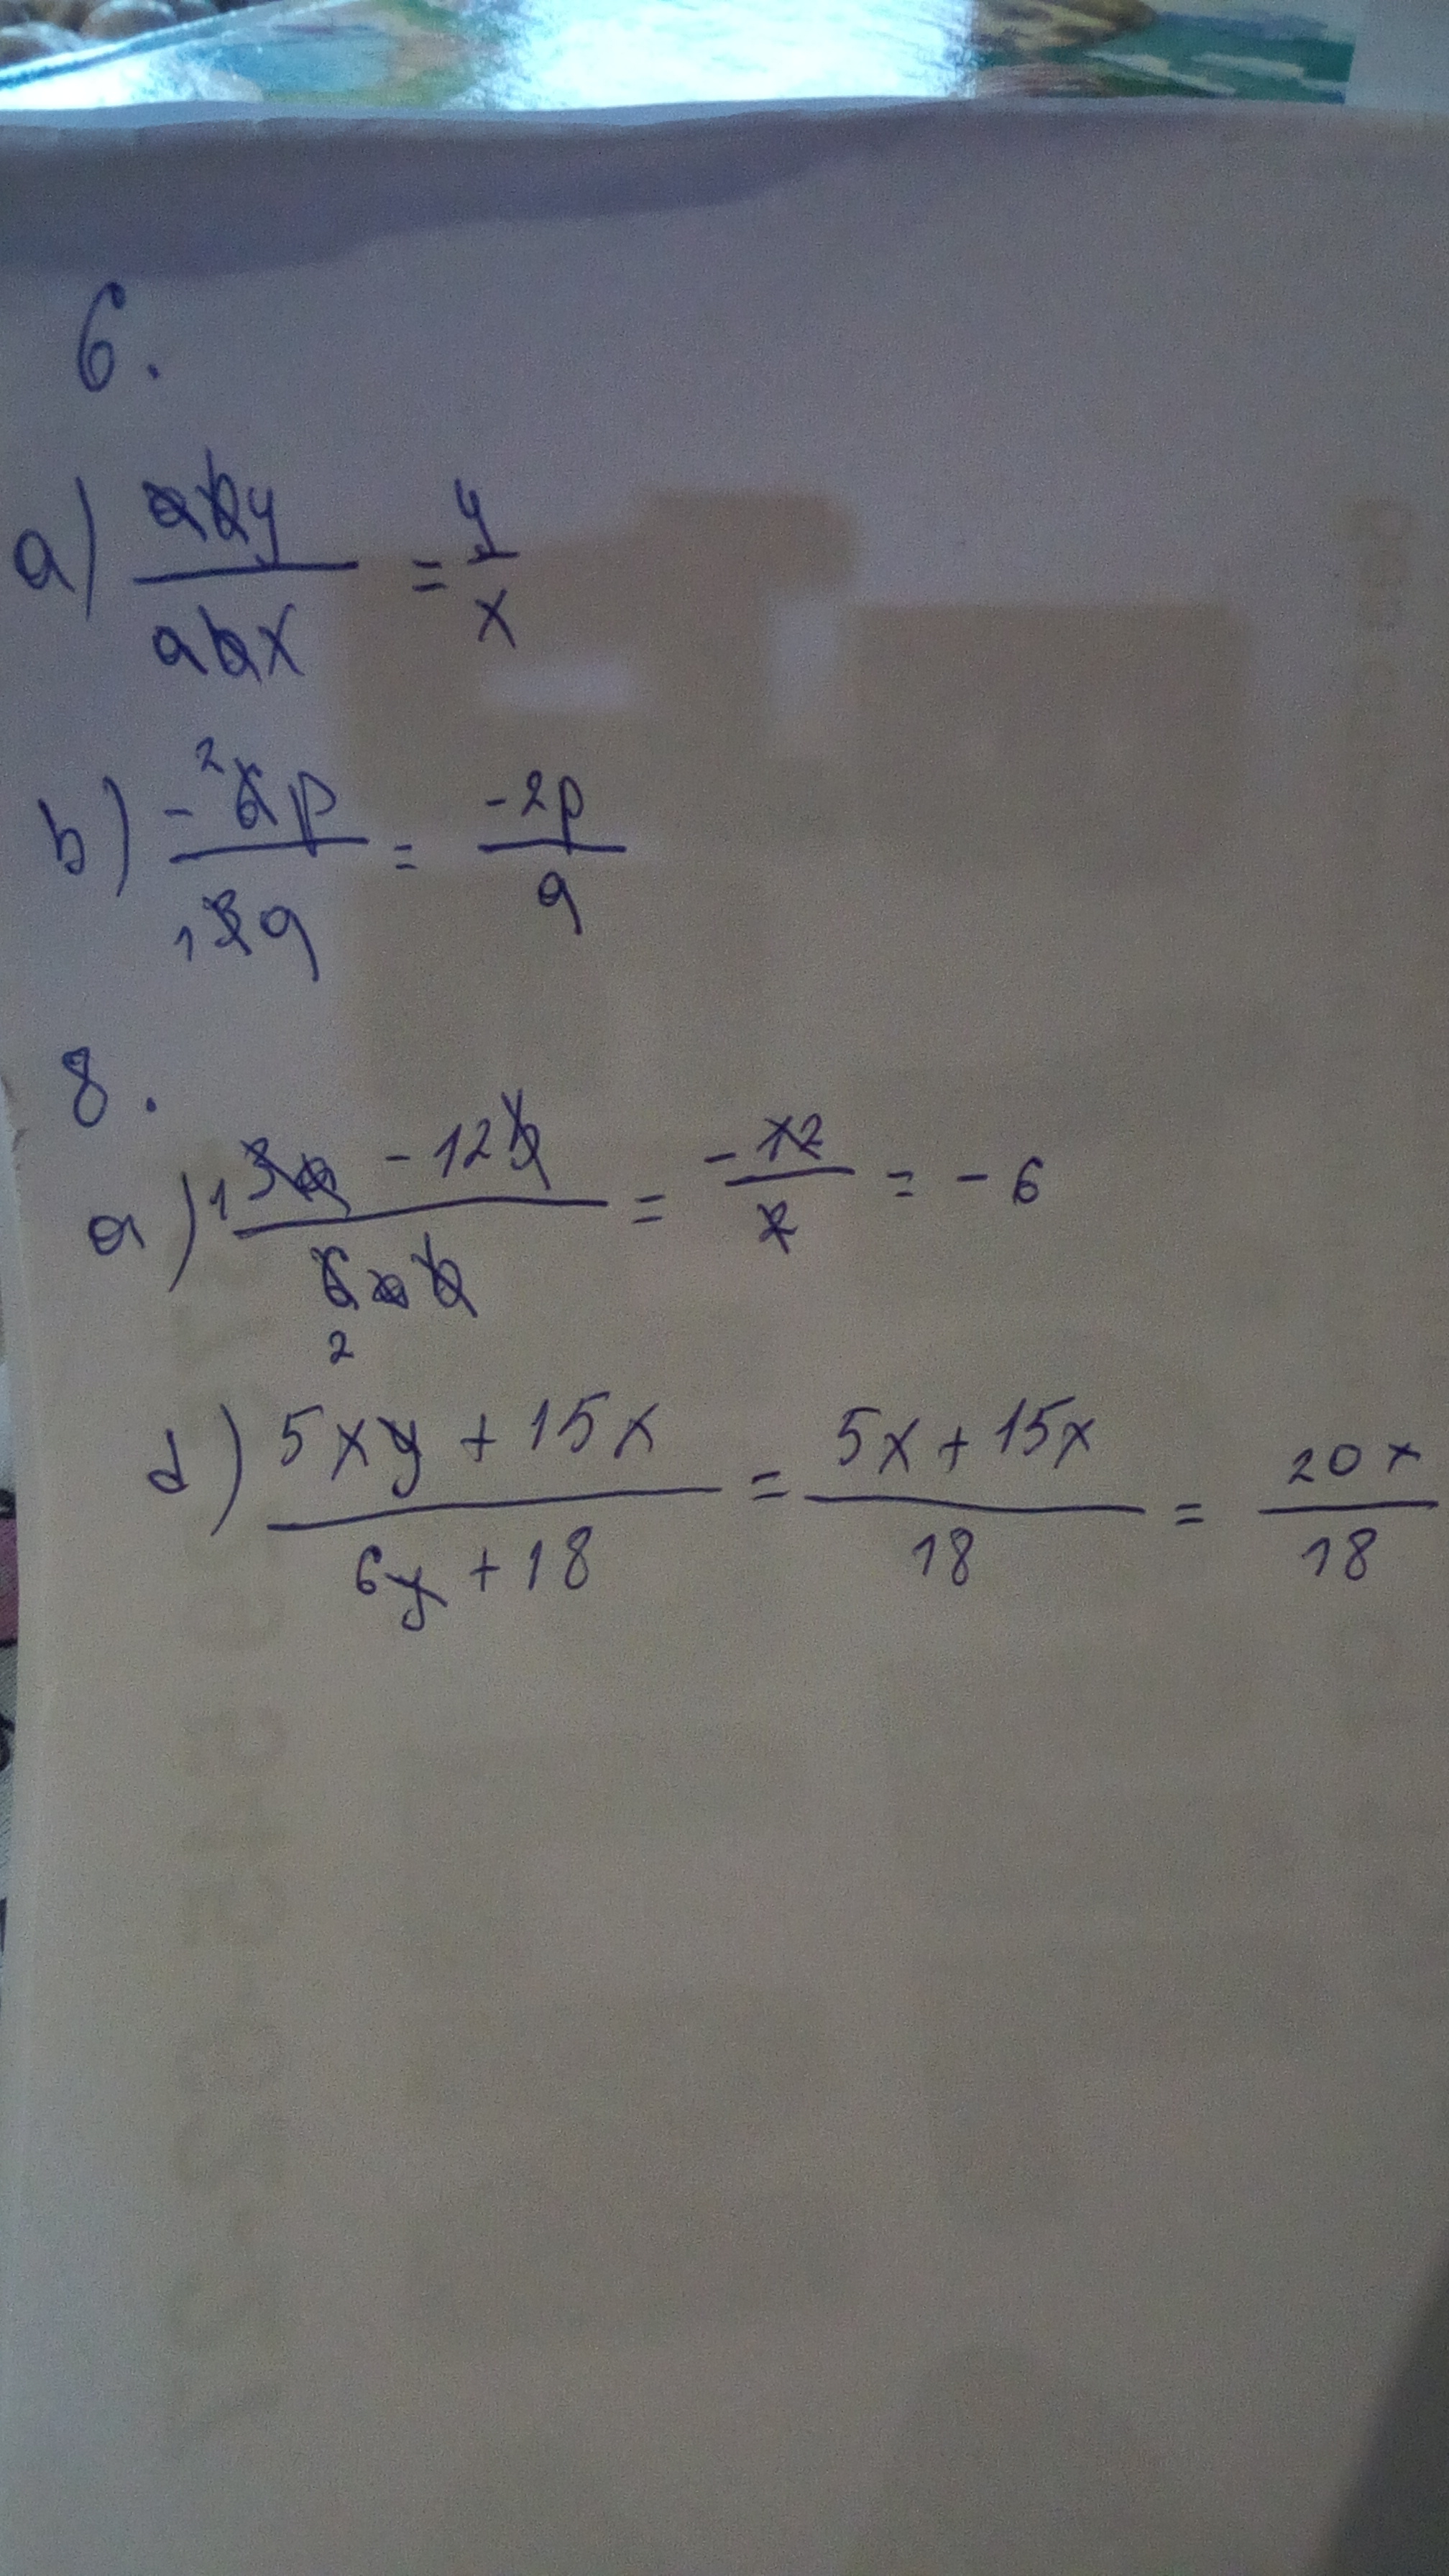 6.
a) aby/abx = y/x
b) -6p/3q = -2p/q
2
1
8.
a) 3a - 12b/6ab = -12/2 = -6
1
2
d) 5xy + 15x/6y + 18 = 5x + 15x/18 = 20x/18